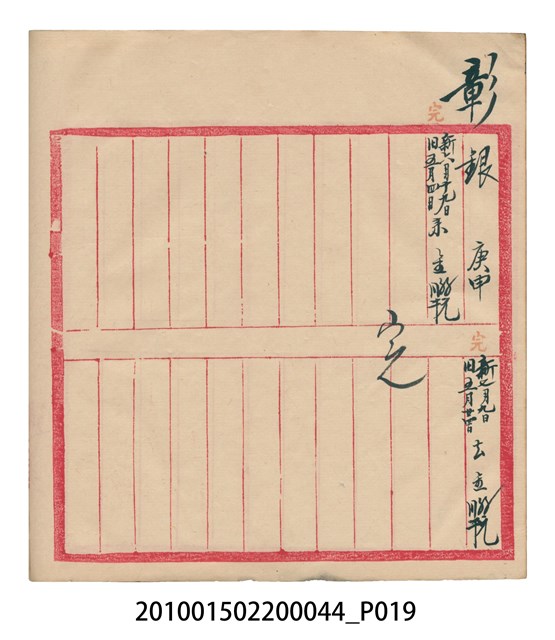 彰銀 庚申
完
新六月十九日
旧五月四日 来
完
新七月九日
旧五月廿四日 去
完
201001502200044_P019